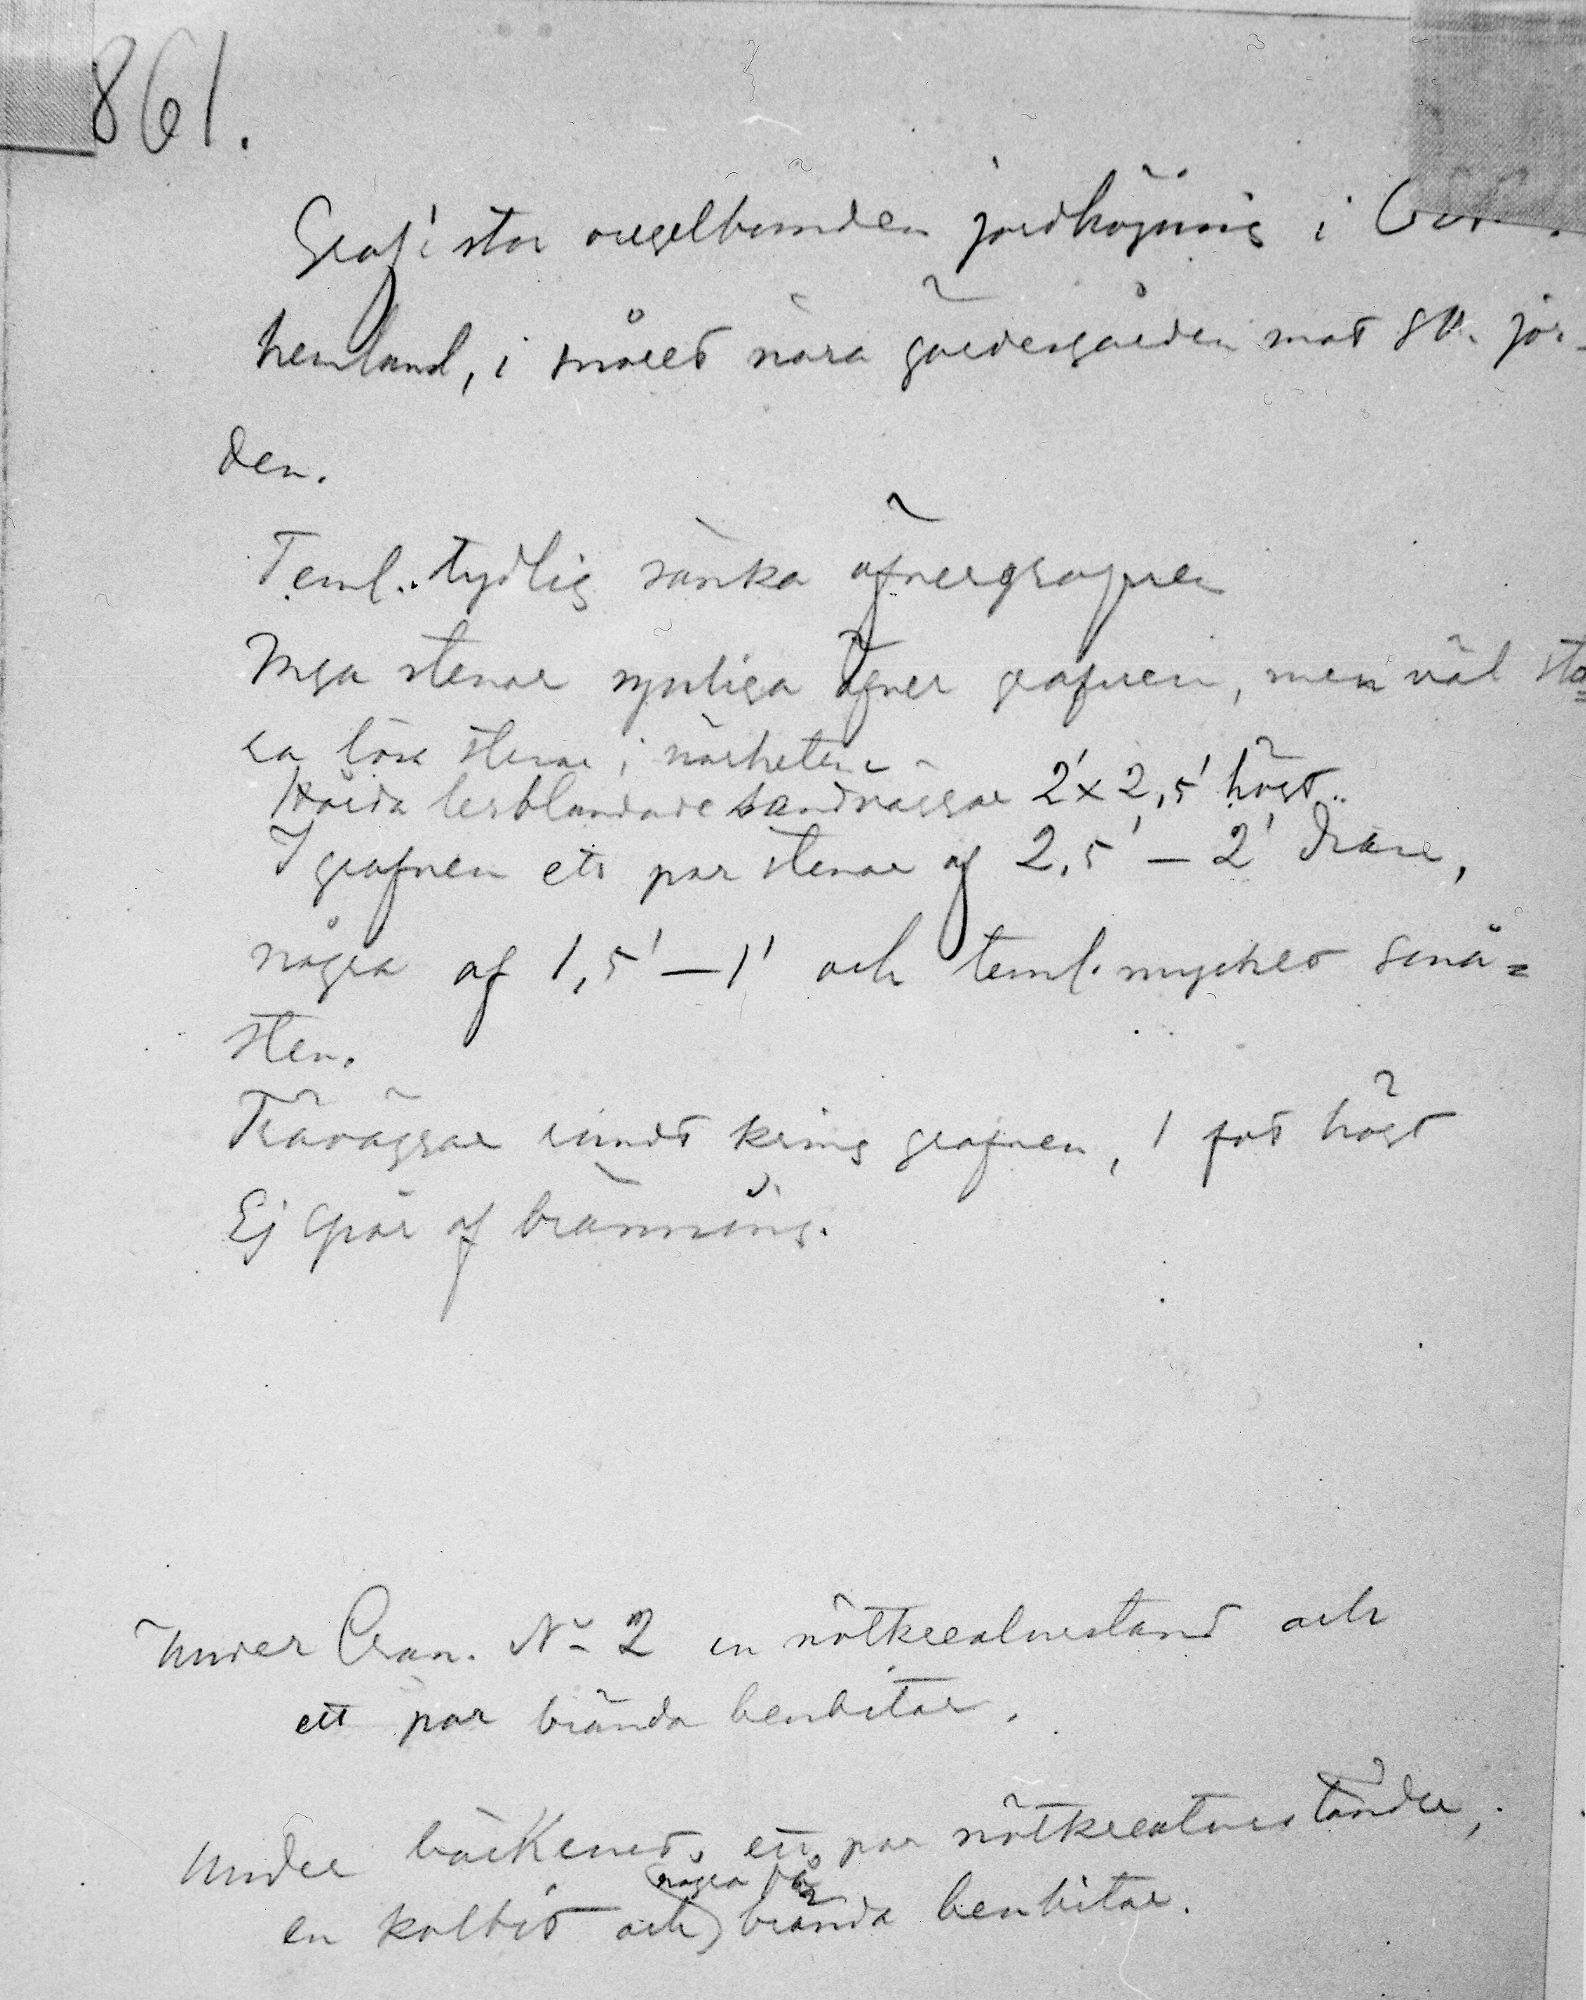 861.
Graf i stor oregelbunden jordhöjning i
hemland, i snåret nära gärdesgården mot SV. jor-
den.
Teml. tydlig sänka öfver grafven
Inga stenar synliga öfver grafven, men väl sto=
ra lösa stenar i närheten.
Hårda lerblandade sandväggar 2' x 2,5' högt.
I grafven ett par stenar af 2,5' — 2' diam,
några af 1,5' — 1' och teml. mycket små=
sten.
Träväggar rundt kring grafven, 1 fot högt
Ej spår af bränning.
Under Cran. No 2 en nötkreaturstand och
ett par brända benbitar.
Under bäckenet, ett par nötkreaturständer,
några små
en kolbit och brända benbitar.